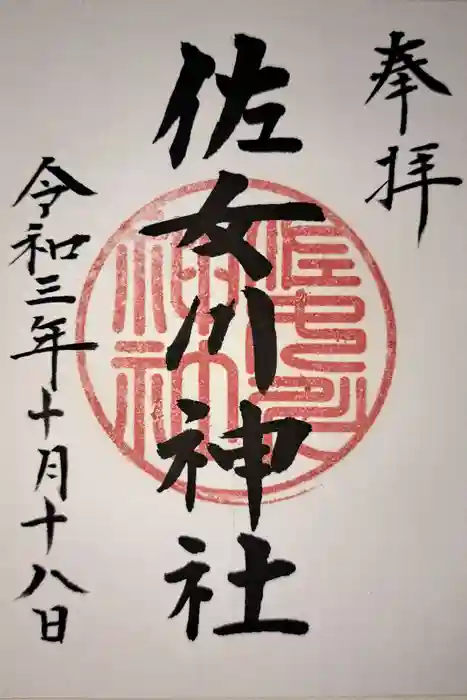 奉拝
佐女川神社
令和三年十月十八日